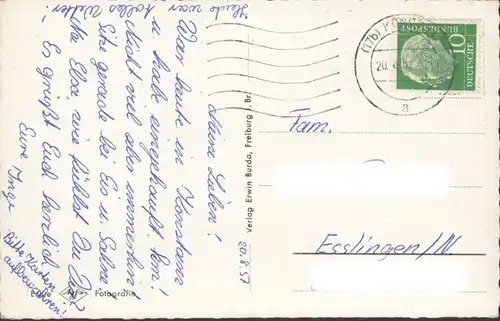 Heute war
tolles Wetter!
Mein Leben!
War heute in Konstanz
u. habe eingekauft. Fein!
Nicht viel aber immerhin.
Sitze gerade bei Eis u. Sahne
Na Elsa, wie fühlst Du Dich
Es grüßt Euch herzlich
Eure Inge
Bitte Karten
aufbewahren!
Fotografie
20.8.57
Verlag Erwin Burda, Freiburg i. Br.
(17b) KONST
20.
a
10
DEUTSCHE
BUNDESPOST
Fam.
Esslingen/N.